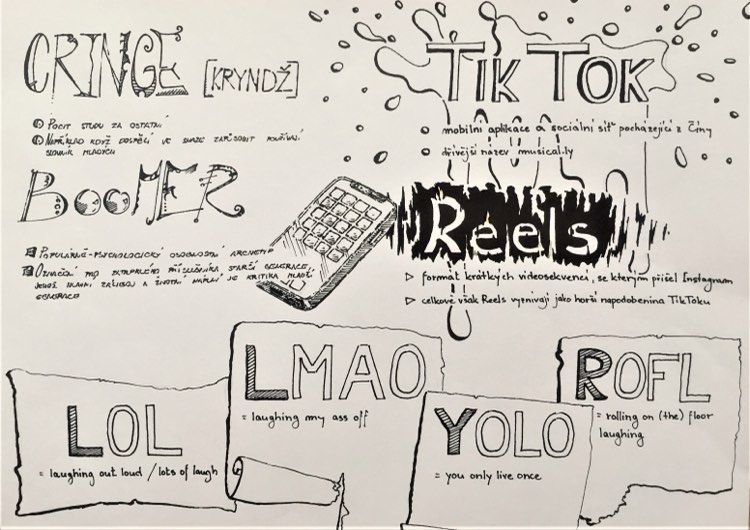 CRINGE [KRYNDŽ]
POCIT STUDU ZA OSTATNÍ
NAPŘÍKLAD KDYŽ DOSPĚLÍ VE SNAZE ZAPŮSOBIT POUŽÍVAJÍ
SLOVNÍK MLADÝCH
BOOMER
POPULÁRNĚ-PSYCHOLOGICKÝ OSOBNOSTNÍ ARCHETYP
OZNAČENÍ PRO STARŠÍ GENERACE
JEHOŽ A ŽIVOTNÍ JE KRITIKA MLADŠÍ
GENERACE
TIK TOK
mobilní aplikace a sociální síť pocházející z Číny
dřívější název musical.ly
Reels
formát krátkých videosekvencí, se kterým přišel Instagram
celkově však Reels vyznívají jako horší napodobenina TikToku
LOL
= laughing out loud / lots of laugh
LMAO
= laughing my ass off
YOLO
= you only live once
ROFL
= rolling on (the) floor
laughing